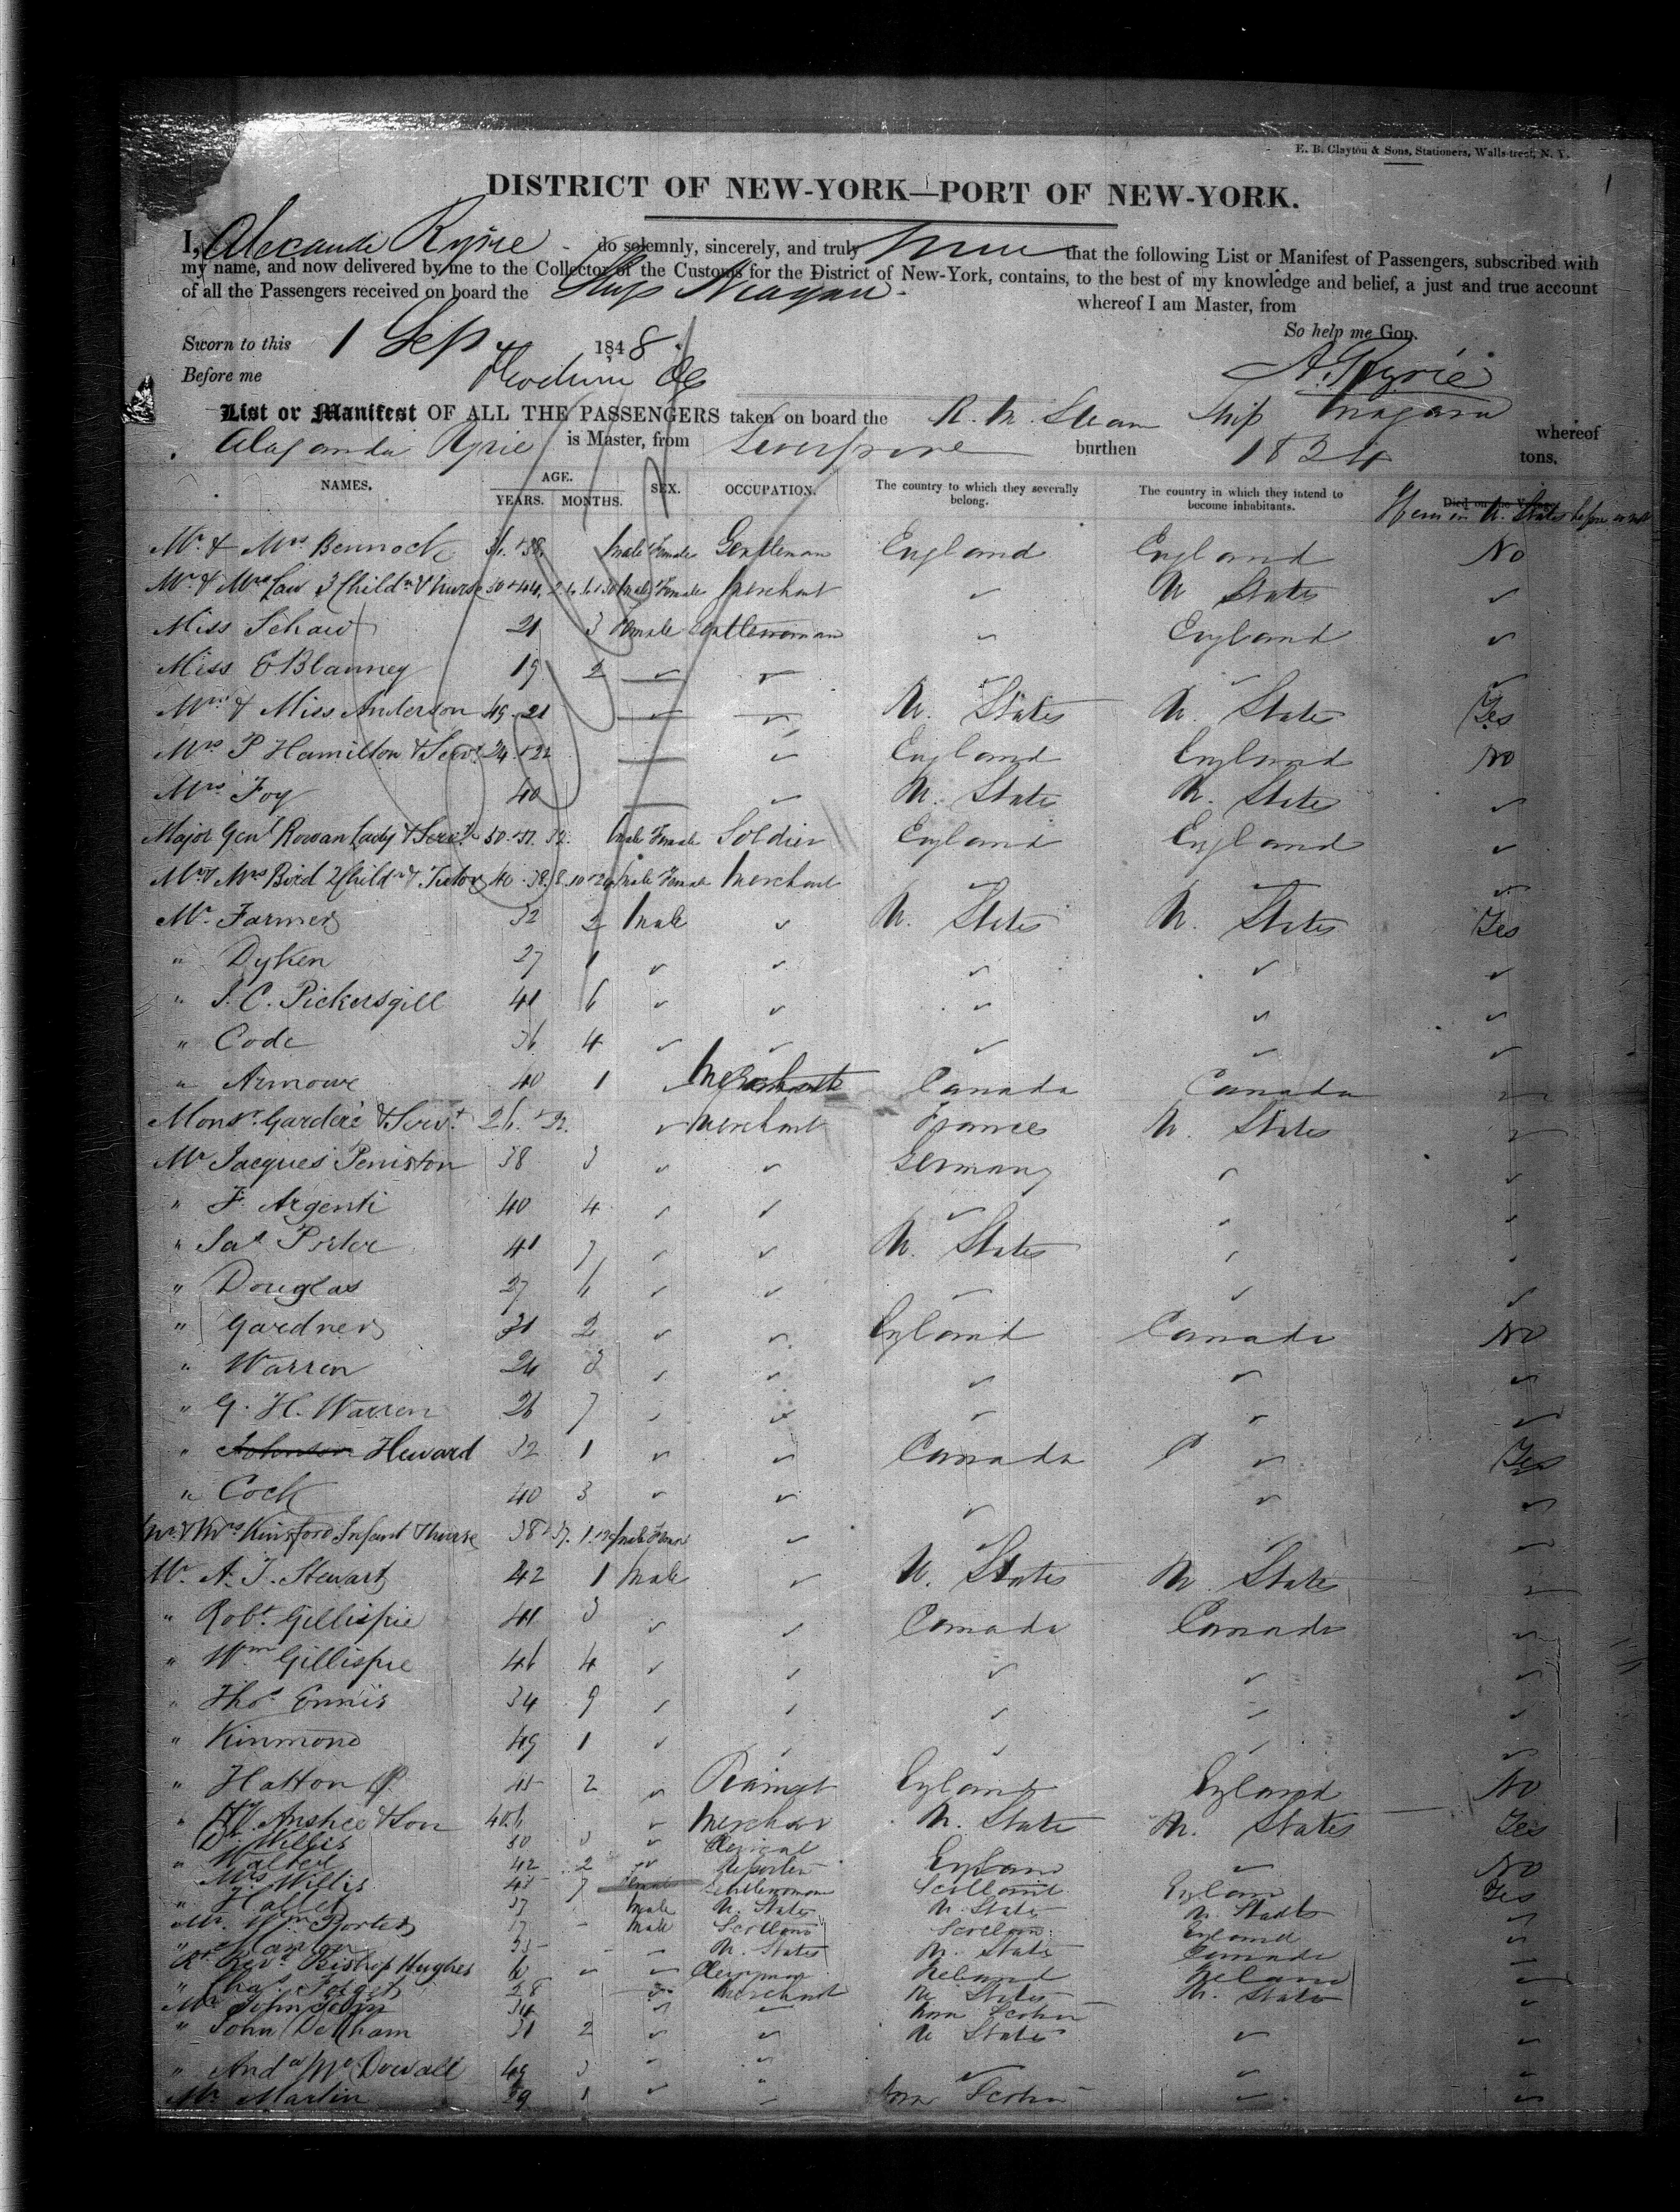 E. B. Clayton & Sons, Stationers, Wall-street, N. Y.
1
DISTRICT OF NEW-YORK—PORT OF NEW-YORK.
I, Alexander Ryrie do solemnly, sincerely, and truly swear that the following List or Manifest of Passengers, subscribed with
my name, and now delivered by me to the Collector of the Customs for the District of New-York, contains, to the best of my knowledge and belief, a just and true account
of all the Passengers received on board the Ship Niagara whereof I am Master, from
So help me God.
Sworn to this 1 Sep 1848
Before me A. Ryrie
List or Manifest OF ALL THE PASSENGERS taken on board the R. M. Steam Ship Niagara whereof
is Master, from Liverpool burthen 1824 tons.
NAMES. AGE. YEARS. MONTHS. SEX. OCCUPATION. The country to which they severally belong. The country in which they intend to become inhabitants. Died on the Voyage
Mr. & Mrs Bennoch 36 + 38 Male Female Gentleman England England No
Mr & Mrs Law 3 Childn & Nurse 50 + 44 Male Female Merchant U States
Miss Schaw 21 3 Female Gentlewoman England
Miss E Blanney 19 2
Mrs & Miss Anderson 49 - 21 U. States U. States Yes
Mrs P Hamilton & Servt 24 + 22 England England No
Mrs Foy 40 U. States U. States
Major Genl Rowan Lady & Servt 50 + 37. 32. Male Female Soldier England England
Mr & Mrs Bird 2 Childn & Tutor 40 - 38 Male Female Merchant
Mr. Farmer 32 2 Male U. States U. States Yes
" Dyken 27 1
" J. C. Pickersgill 41 6
" Code 36 4
" Armowe 40 1 Canada Canada
Monsr. Gardere & Servt 26 + 22. Merchant France U. States
Mr Jacques Peniston 38 3 Germany
" F. Argenti 40 4
" Jas Porter 41 7 U. States
" Douglas 27 6
" Gardner 31 2 England Canada No
" Warren 24 3
" G. H. Warren 26 7
" Johnson Heward 32 1 Canada Yes
" Cock 40 3
Mr & Mrs Kinsford Infant & Nurse 38 + 37. Male Female
Mr. A. T. Stewart 42 1 Male U. States U. States
" Robt Gillispie 41 3 Canada Canada
" Wm Gillispie 46 4
" Thos Ennis 34 9
" Kinmond 49 1
" Hatton 45 2 England England No
" Anstice & Son Merchant U. States U. States Yes
Dr Willis 50 3 Clerical
" Walter 42 2 Reporter England No
Mrs Willis 45 7 Female Gentlewoman Scotland England Yes
" Hallet 37 Male U. States U. States U. States
Mr. Wm Porter 17 Male Scotland Scotland England
" Manton 35 U. States U. States Canada
Rt Revd Bishop Hughes Clergyman Ireland Ireland
" Chas Forget 28 Merchant U States U. States
Mr John 34 Nova Scotia
" John Denham 31 2 U States
" Andw McDowall 49 3
Mr Martin 39 1 Nova Scotia